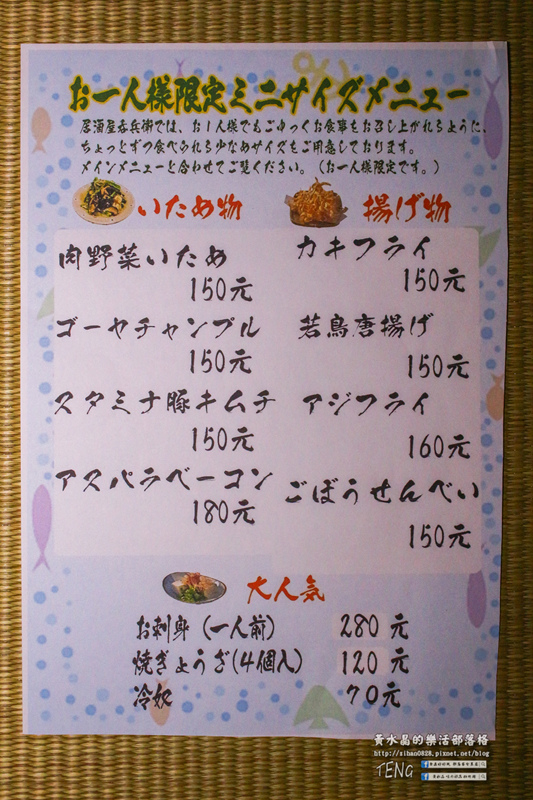 お一人様限定ミニサイズメニュー
居酒屋呑兵衛では、お1人様でもごゆっくりお食事をお召し上がれるように、
ちょっとずつ食べられる少なめサイズもご用意しております。
メインメニューと合わせてご覧ください。(お一人様限定です。)
いため物
肉野菜いため
150元
ゴーヤチャンプル
150元
スタミナ豚キムチ
150元
アスパラベーコン
180元
揚げ物
カキフライ
150元
若鳥唐揚げ
150元
アジフライ
160元
ごぼうせんべい
150元
大人気
お刺身 (一人前) 280 元
焼ぎょうざ(4個入) 120 元
冷奴 70元
黃水晶的樂活部落格
http://sihan0828.pixnet.net/blog
TENG